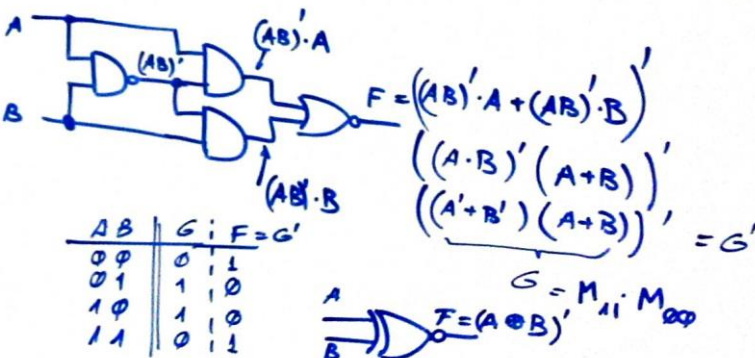 A
B
(AB)'
(AB)'·A
(AB)'·B
F = ((AB)'·A + (AB)'·B)'
((A·B)' (A+B))'
((A'+B') (A+B))' = G'
G = M₁₁· M₀₀
A B G F=G'
0 0 0 1
0 1 1 0
1 0 1 0
1 1 0 1
A
B
F=(A⊕B)'